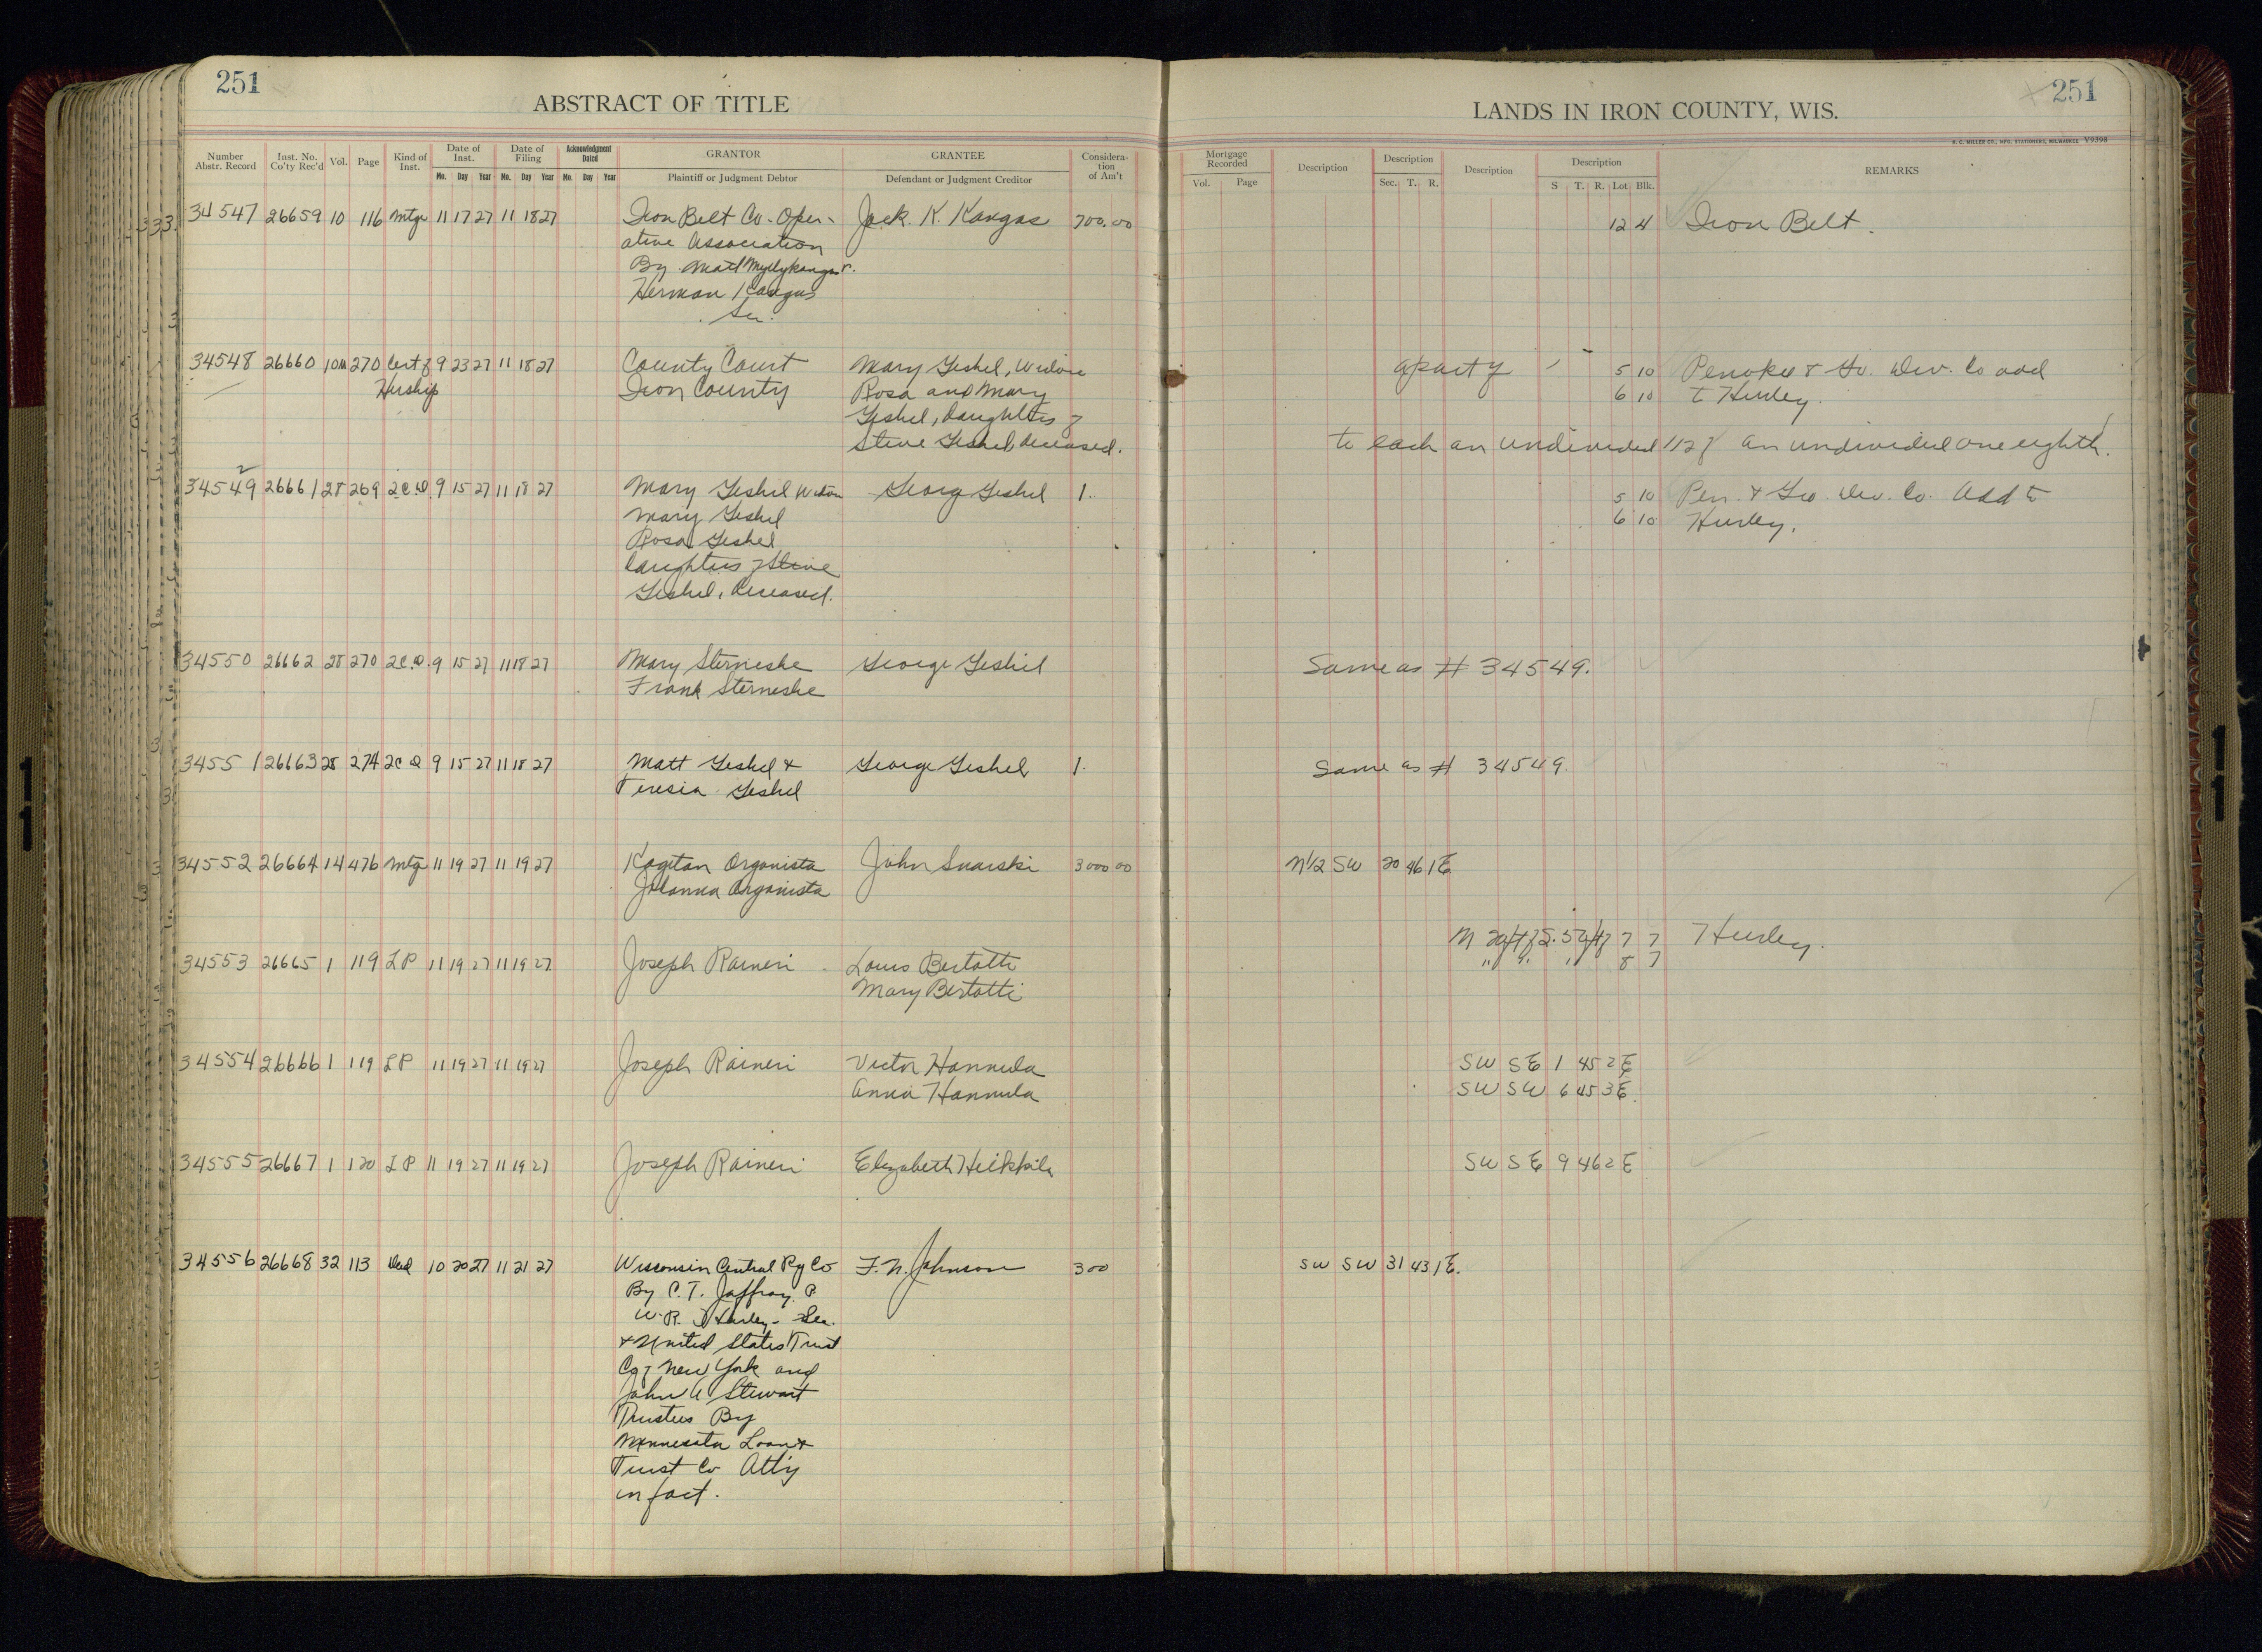 251
ABSTRACT OF TITLE
LANDS IN IRON COUNTY, WIS.
251
H. C. MILLER CO., MFG. STATIONERS, MILWAUKEE V9398
Number Abstr. Record
Inst. No. Co'ty Rec'd
Vol.
Page
Kind of Inst.
Date of Inst.
Mo. Day Year
Date of Filing
Mo. Day Year
Acknowledgment Dated
Mo. Day Year
GRANTOR
Plaintiff or Judgment Debtor
GRANTEE
Defendant or Judgment Creditor
Considera-tion of Am't
Mortgage Recorded
Vol. Page
Description
Description
Sec. T. R.
Description
Description
S T. R. Lot Blk.
REMARKS
34547 26659 10 116 Mtge 11 17 27 11 18 27 Iron Belt Co-Oper- Jack K. Kangas 700.00 12 4 Iron Belt.
ative Association
By Matt Myllykangas &
Herman Kangas
Sec.
34548 26660 10M 270 Cert of 9 23 27 11 18 27 County Court Mary Geshel, Widow a part of 5 10 Penokee & Go. Dev. Co add
Hirship Iron County Rosa and Mary 6 10 to Hurley.
Geshel, Daughters of
Steve Geshel, deceased. to each an undivided 1/12 of an undivided one eighth.
34549 26661 28 269 2C.D. 9 15 27 11 18 27 Mary Geshel Widow Georg Geshel 1. 5 10 Pen. & Go. Dev. Co. Add to
Mary Geshel 6 10 Hurley.
Rosa Geshel
Daughters of Steve
Geshel, Deceased.
34550 26662 28 270 2C.D. 9 15 27 11 18 27 Mary Sterneshe George Geshel Same as # 34549.
Frank Sterneshe
34551 26663 28 274 2C D 9 15 27 11 18 27 Matt Geshel & George Geshel 1. Same as # 34549.
Teresia Geshel
34552 26664 14 476 Mtge 11 19 27 11 19 27 Kagitan Organista John Snarski 3000 00 N1/2 SW 20 46 1E
Johanna Organista
N 29 ft of S. 54 ft of 7 7 Hurley.
34553 26665 1 119 LP 11 19 27 11 19 27 Joseph Raineri Louis Bertotti " " " 8 7
Mary Bertotti
34554 26666 1 119 LP 11 19 27 11 19 27 Joseph Raineri Victor Hannula SW SE 1 45 2E
Anna Hannula SW SW 6 45 3E.
34555 26667 1 120 LP 11 19 27 11 19 27 Joseph Raineri Elizabeth Heikkila SW SE 9 46 2E
34556 26668 32 113 Deed 10 20 27 11 21 27 Wisconsin Central Ry Co F. N. Johnson 300 SW SW 31 43 1E.
By C. T. Jaffray. P.
W. R. Harley- Sec.
& United States Trust
Co of New York and
John A Stewart
Trustees By
Minnesota Loan &
Trust Co Att'y
in fact.